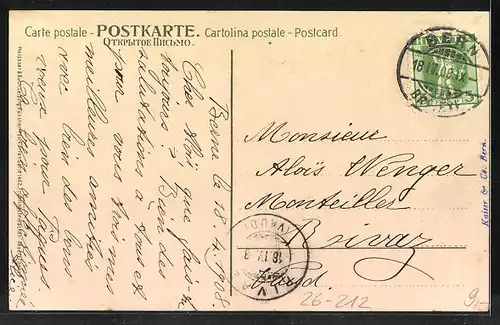 Carte postale - POSTKARTE. Cartolina postale - Postcard.
ОТКРЫТОЕ ПИСЬМО.
BERN
18.IV.08
Berne le 18.4.1908.
Cher Aloïs que fais-tu
toujours? Bien des
salutations à tous et
pour vous mes
meilleures amitiés
bien des bons
vœux pour Pâques
Monsieur
Aloïs Wenger
Monteiller
Rivaz
Vaud.
RIVAZ
(VAUD)
18.IV.08
26-212
9,-
Kaiser & Co. Bern.